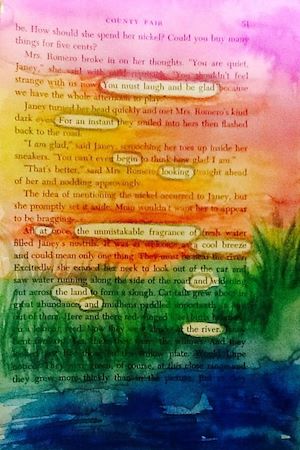 COUNTY FAIR 51
be. How should she spend her nickel? Could you buy many
things for five cents?
Mrs. Romero broke in on her thoughts. "You are quiet,
Janey," she said with You shouldn't feel
strange with us now. You must laugh and be glad because
we have the whole afternoon to play."
Janey turned her head quickly and met Mrs. Romero's kind
dark eyes. For an instant they smiled into hers then flashed
back to the road.
"I am glad," said Janey, scrooching her toes up inside her
sneakers. "You can't even begin to think how glad I am."
"That's better," said Mrs. Romero looking straight ahead
of her and nodding approvingly.
The idea of mentioning the nickel occurred to Janey, but
she promptly set it aside. Mom wouldn't want her to appear
to be bragging.
All at once, the unmistakable fragrance of fresh water
filled Janey's nostrils. It was a cool breeze
and could mean only one thing. They must be near the river.
Excitedly, she craned her neck to look out of the car and
saw water running along the side of the road and
out across the land to form a slough. Cattails grew about
great abundance and
out of them. Here and there red-winged
the river.
of course, at this close range and
they grew more thickly than in the picture. But